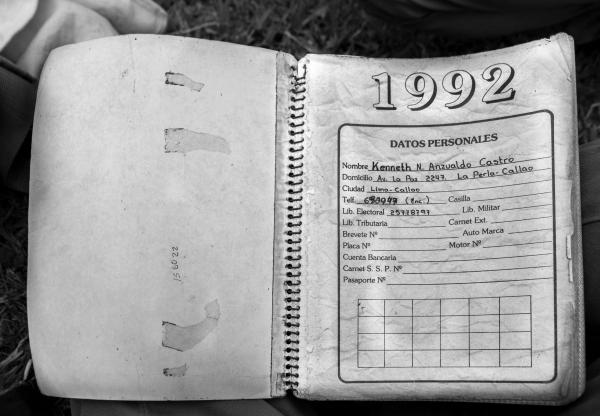 1992
DATOS PERSONALES
Nombre Kenneth N. Anzualdo Castro
Domicilio Av. La Paz 2247. La Perla-Callao
Ciudad Lima-Callao
Telf. (Enc.) Casilla
Lib. Electoral 25738797 Lib. Militar
Lib. Tributaria Carnet Ext.
Brevete Nº Auto Marca
Placa Nº Motor Nº
Cuenta Bancaria
Carnet S. S. P. Nº
Pasaporte Nº